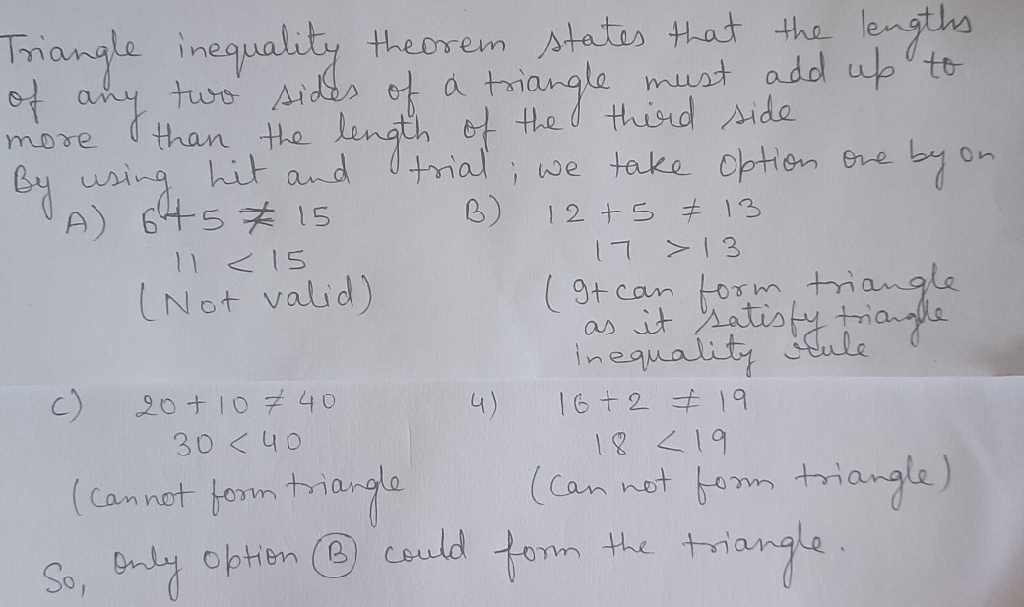 Triangle inequality theorem states that the lengths
of any two sides of a triangle must add up to
more than the length of the third side
By using hit and trial ; we take option one by on
A) 6+5 ≠ 15 B) 12 + 5 ≠ 13
11 < 15 17 > 13
(Not valid) (It can form triangle
as it satisfy triangle
inequality rule
C) 20 + 10 ≠ 40 4) 16 + 2 ≠ 19
30 < 40 18 < 19
(Cannot form triangle (Can not form triangle)
So, only option (B) could form the triangle.